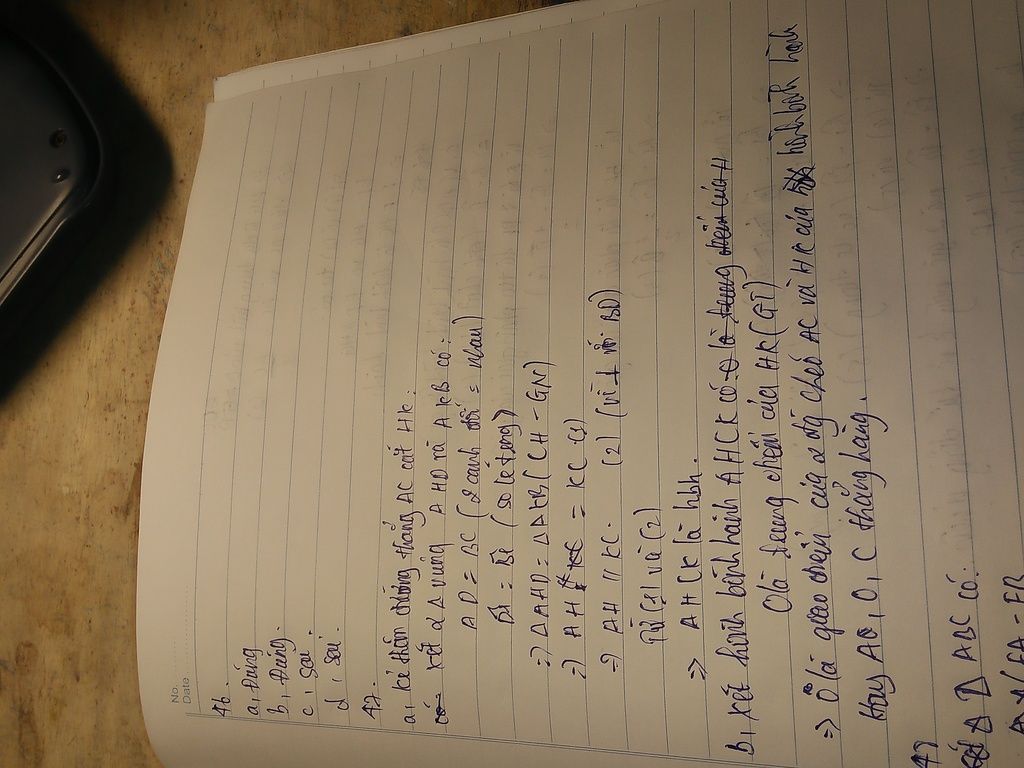 No.
Date
46.
a, Đúng
b, Đúng.
c, Sai.
d, sai.
47.
a, Kẻ thêm đường thẳng AC cắt HK.
có xét 2 Δ vuông AHD và AKB có:
AD = BC (2 cạnh đối = nhau)
(so le trong)
=> Δ AHD = Δ KB (CH - GN)
=> AH = KC (1)
=> AH // KC. (2) (vì ⊥ với BD)
Từ (1) và (2)
=> AHCK là hbh.
b, xét hình bình hành AHCK có O là trung điểm của H
O là trung điểm của HK (GT)
=> O là giao điểm của 2 đg chéo AC và HK của hình bình hành
Hay A, O, C thẳng hàng.
47
Δ ABC có: